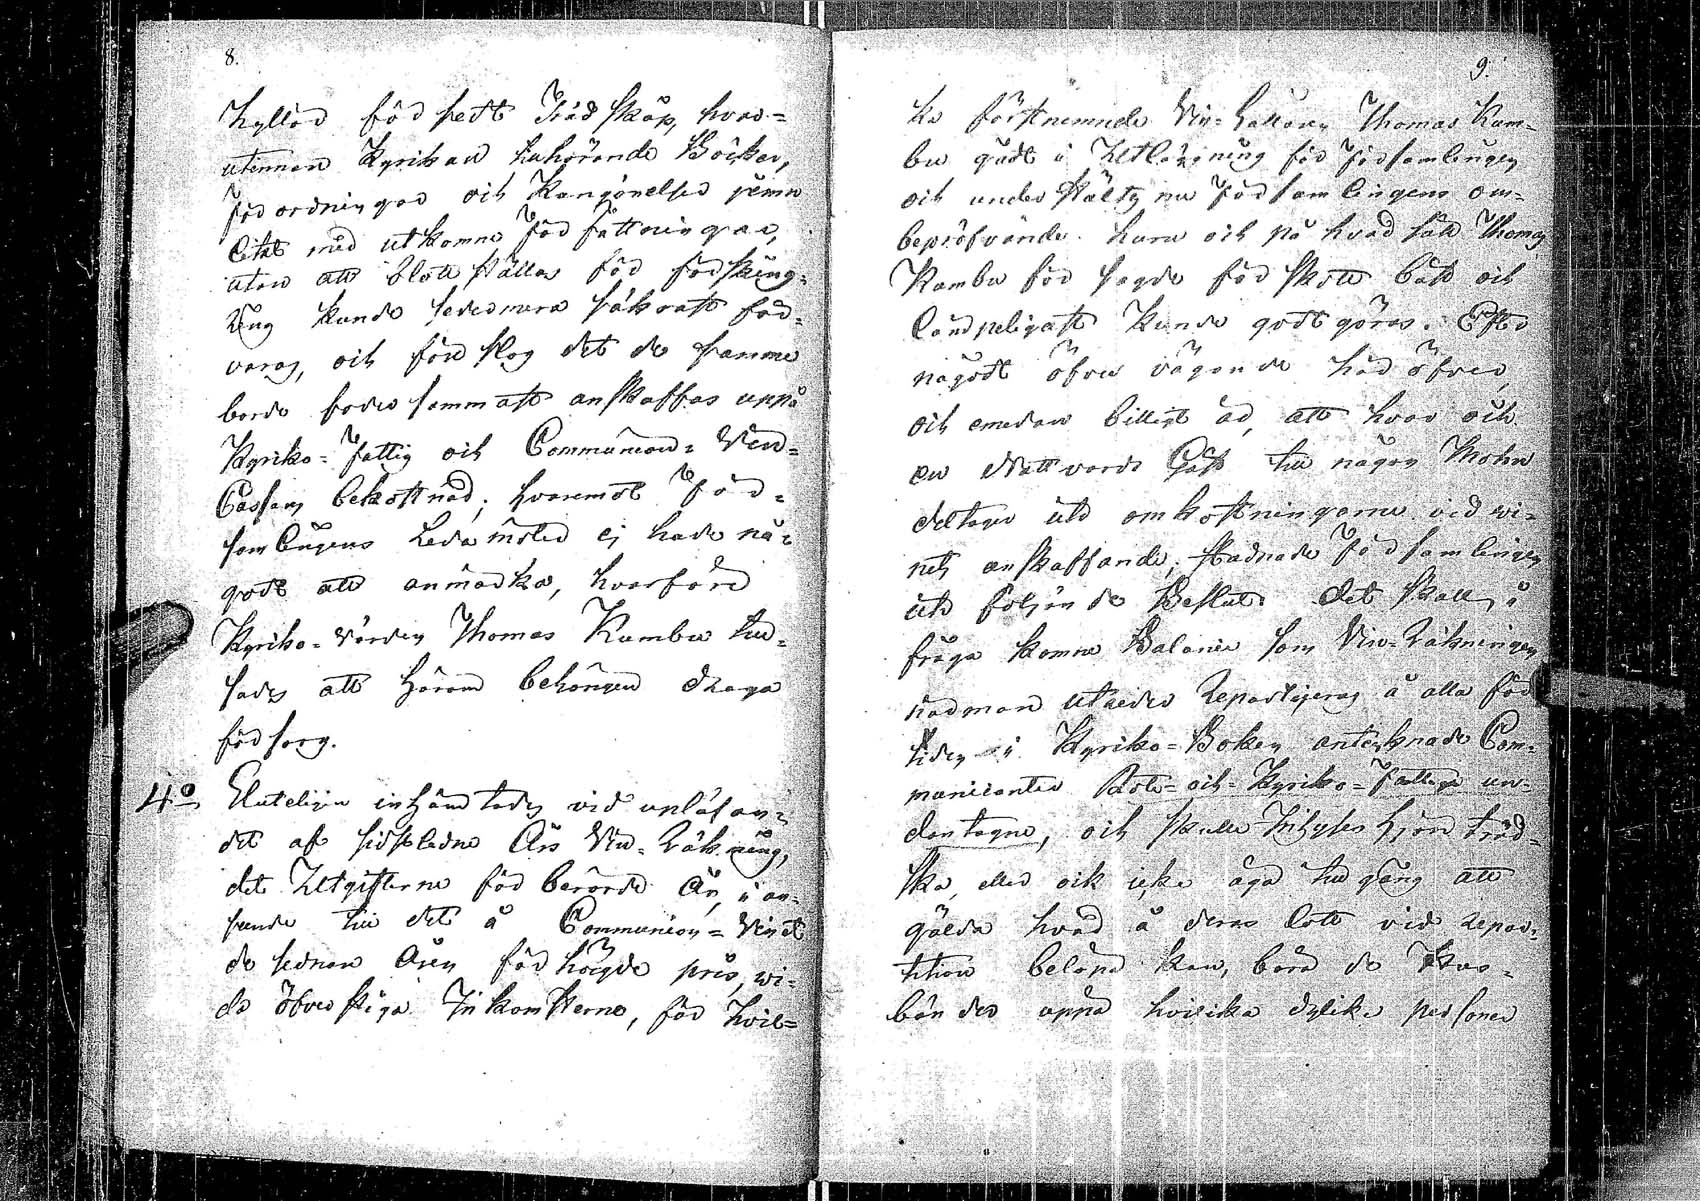 8.
hyllor försedt Träd skåp, hvar=
utinnan Kyrkan tilhörande Böcker,
Förordningar och Kungörelser jemn
likt med utkomne Författningar,
utan att blott ställas för förskïng=
ring kunde sedermera säkrast för=
varas, och föreslog det de samma
borde fordersammast anskaffas uppå
Kyriko= Fattig och Communions= Vin=
Cassans bekostnad; hvaremot För=
samlingens Ledamöter ej hade nå=
godt att anmärka, hvarföre
Kyriko= Värden Thomas Kumbu till=
sades att härom behörigen draga
försorg.
4o Sluteligen inhämtades vid upläsan=
det af sidstledne Års Vin= Räkning,
det Utgifterne för berörde År, i an=
seende till det å Communion= Vinet
de sednare Åren förhögde pris, wi=
da öfverstiga Inkomsterne, för hvil=
9.
ka förstnemnde Vin= Hållare Thomas Kum=
bu gådt i Utlägning för Församlingen
och understältes nu Församlingens om=
bepröfvande. huru och på hvad sätt Thomas
Kumbu för sagde förskott bäst och
lämpeligast kunde godtgöras. Efter
någodt öfvervägande häröfver,
och emedan billigt är, att hvar och
en Nattvards Gäst till någon Mohn
deltager uti omkostningarne vid wi=
nets anskaffande, stadnade Församlingen
uti följande Beslut: det skall, i
fråga komne Balance som Vin= Räkningen
närmare utreder repartiseras å alla för
tiden i Kyriko= Boken antecknade Com=
municanter Rote= och= Kyriko= Fattige un=
dantagne, och skulle Inhyses Hjon träd=
ska, eller ock icke äga tillgång att
gälda hvad å deras lott vid repar=
tition belöpa kan, böra de Hus=
bönder uppå hvilcka dylika personer